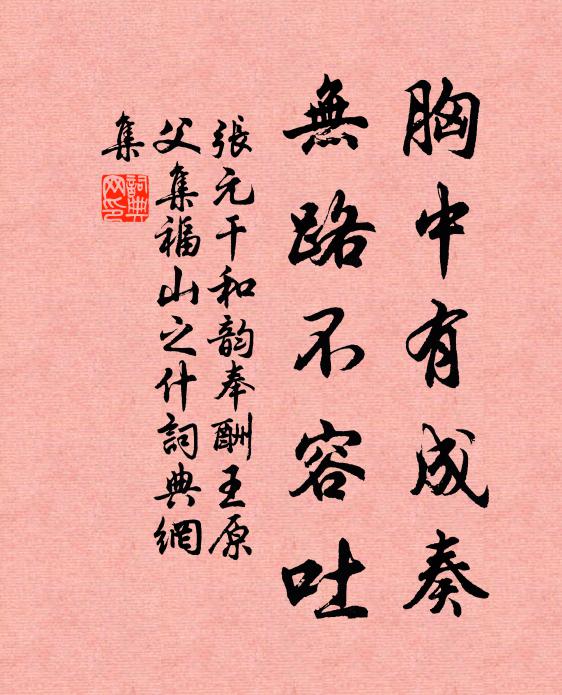 胸中有成奏
無路不容吐
張元干和韵奉酬王原
父集福山之什詞典網
集
詞典
网印